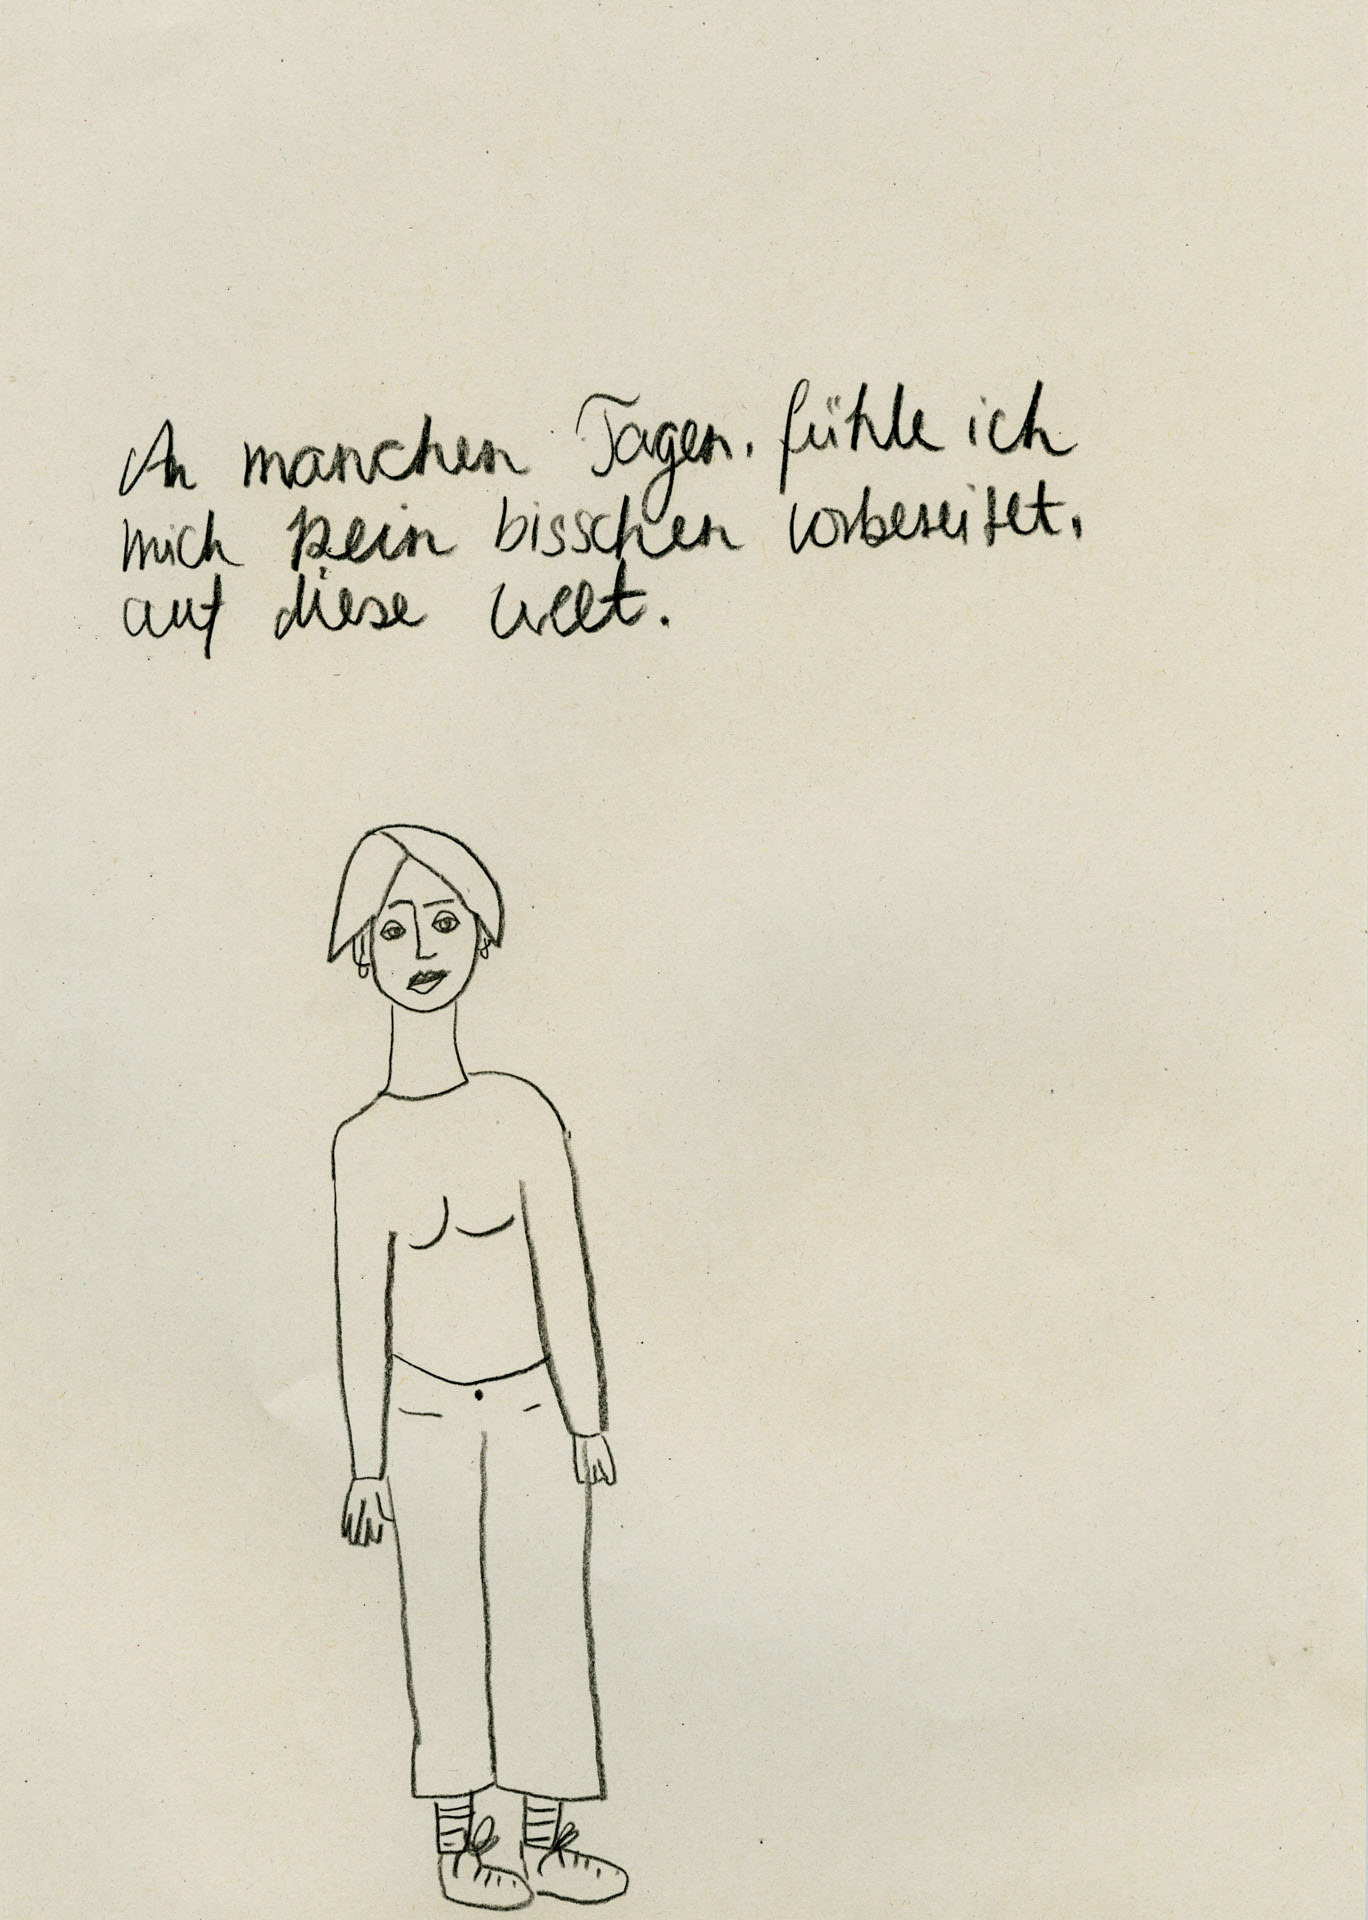 An manchen Tagen, fühle ich
mich kein bisschen vorbereitet,
auf diese Welt.